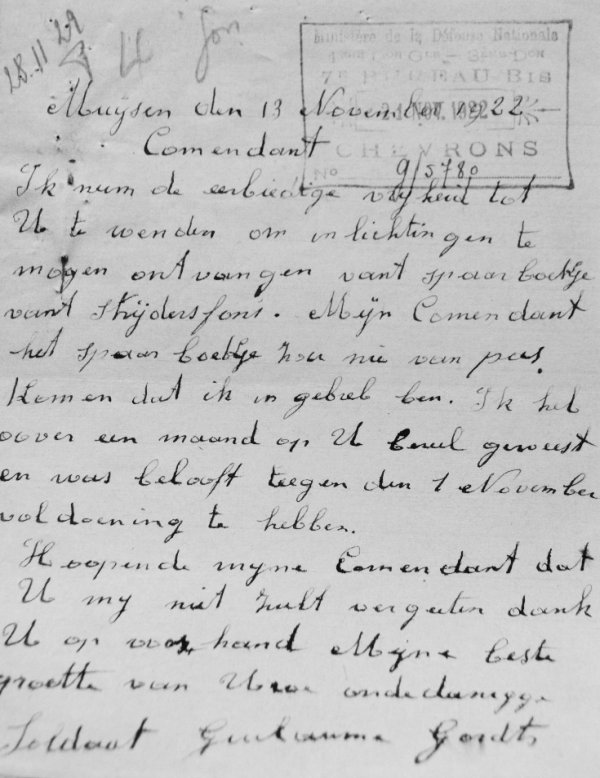 28.11 29
4 fon
Ministère de la Défense Nationale
7E BUREAU BIS
21 NOV. 1922
CHEVRONS
No 9/5780
Muijsen den 13 November 1922
Comendant
Ik nem de eerbiedige vrijheid tot
U te wenden om inlichtingen te
mogen ontvangen vant spaarboekje
vant strijdersfons. Mijn Comendant
het spaar boekje zou nu van pas
Komen dat ik in gebrek ben. Ik heb
oover een maand op U geweest
en was belooft teegen den 1 November
voldoening te hebben.
Hoopende myne Comendant dat
U my niet zult vergeeten dank
U op voor hand Mijne beste
groette van Uwe onderdanigge
Soldaat Guilaume Gordts